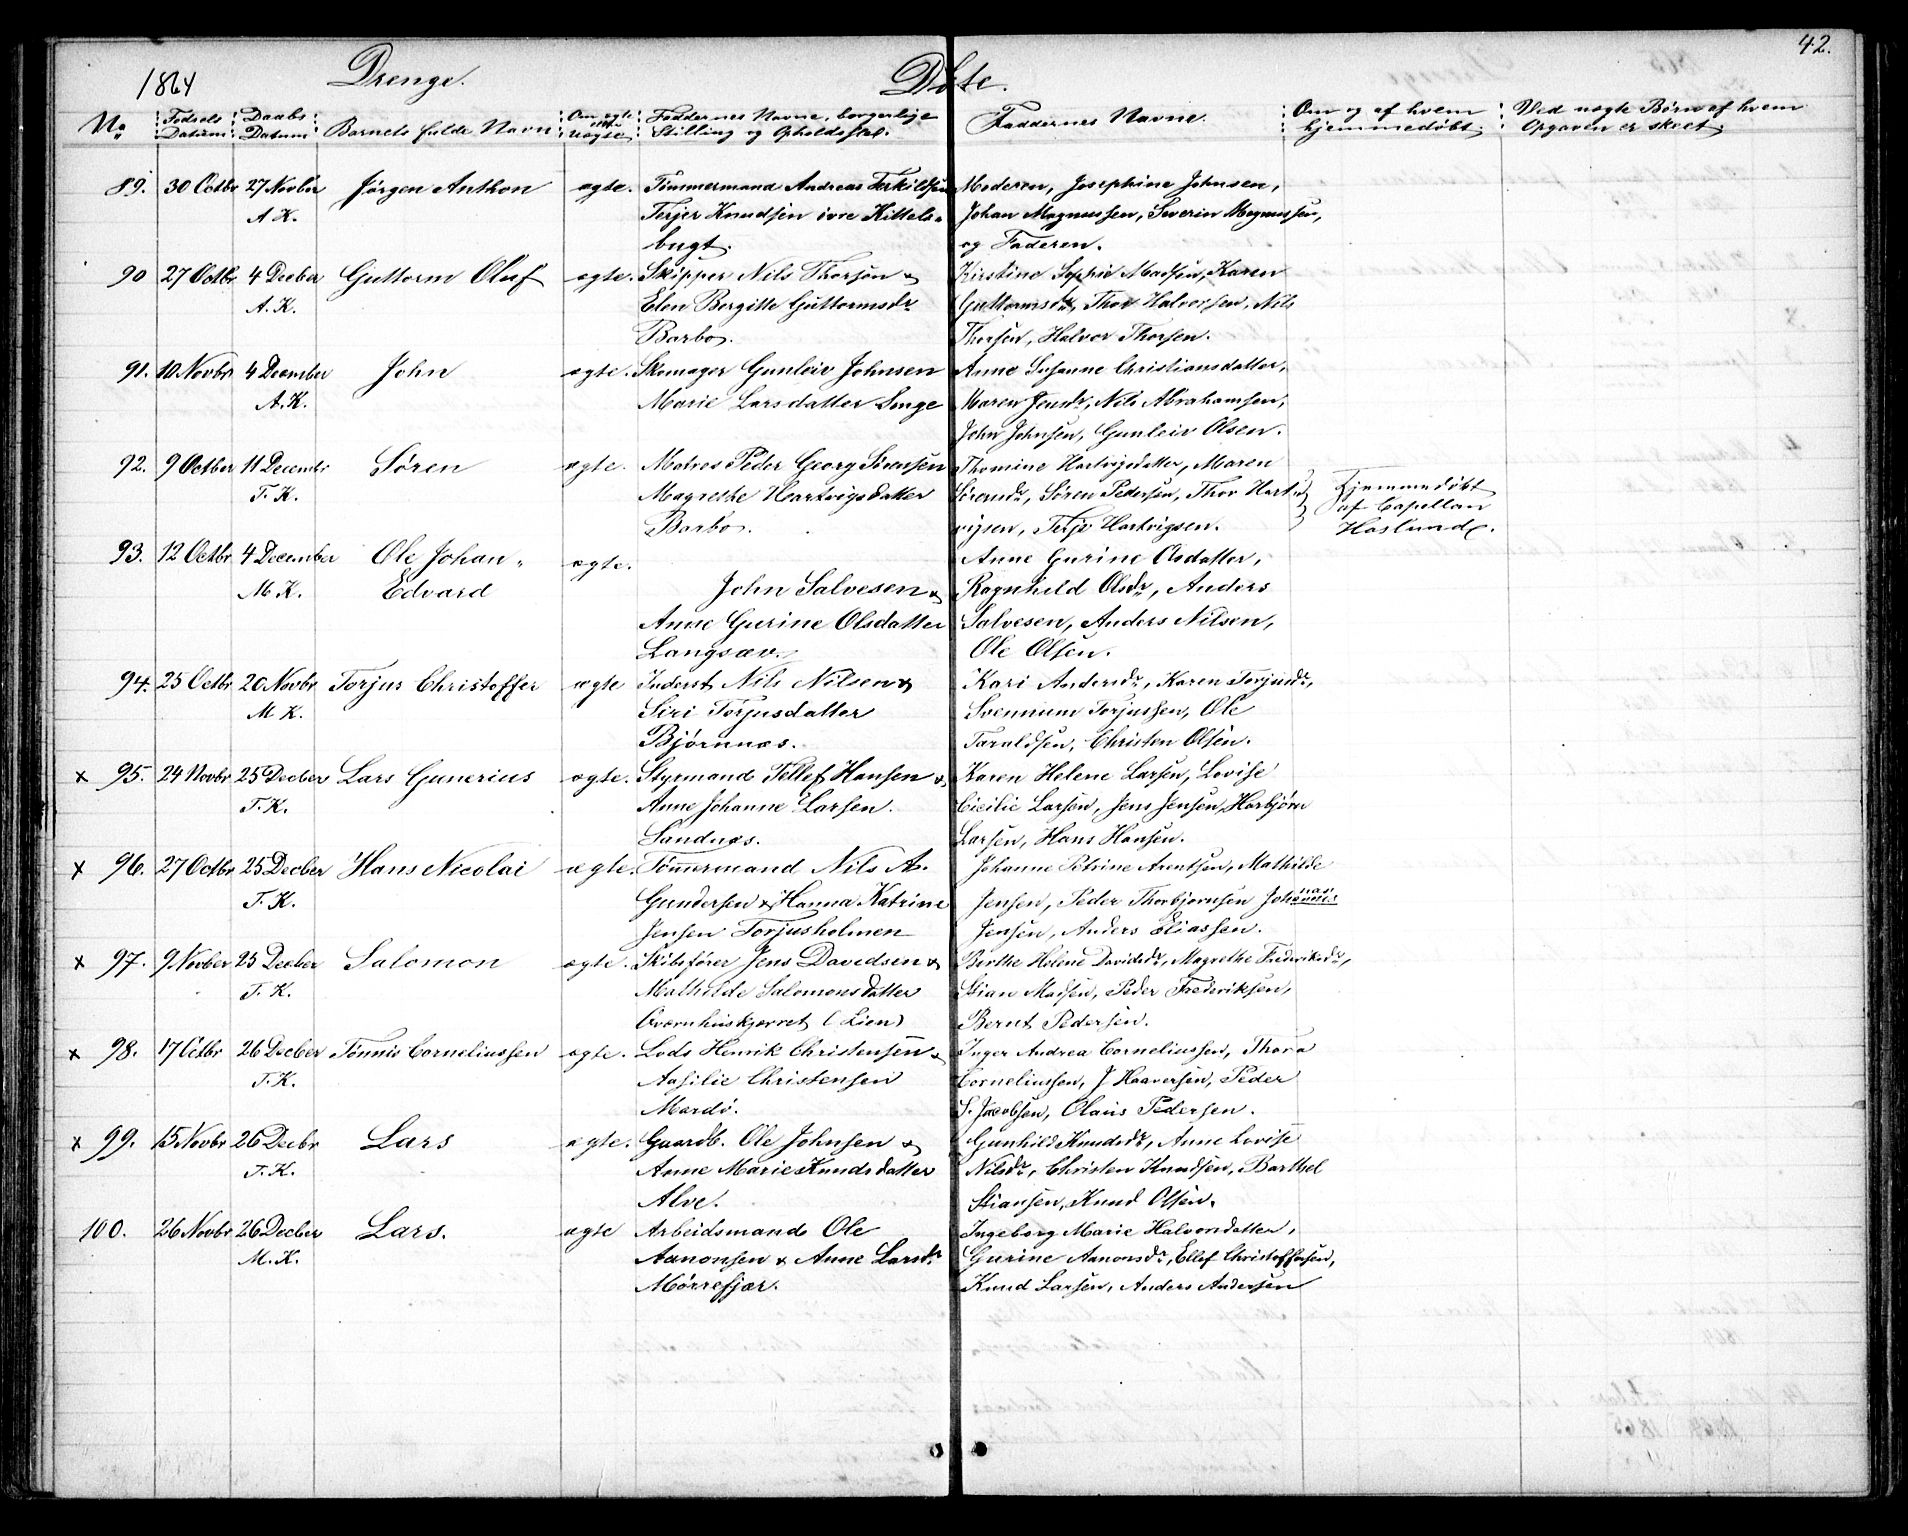 42.
1864 Drenge. Døbte.
No Fødsels Datum Daabs Datum Barnets fulde Navn Om ægte eller uægte Fædrenes Navne, borgerlige Stilling og Opholdssted. Faddernes Navne. Om og af hvem hjemmedøbt. Ved uægte Børn af hvem Opgaven er skeet.
89. 30 Octbr 27 Novbr Jørgen Anthon ægte. Tømmermand Andreas Terkildsen Moderen, Josephine Johnsen,
A. K. Terjer Knudsen ivre Kittels- Johan Magnussen, Severin Magnussen,
bugt. og Faderen.
90 27 Octbr 4 Decber Guttorm Oluf ægte. Skipper Nils Thorsen & Kirstine Sophie Madsen, Karen
A. K. Elen Birgitte Guttormsdr Guttormsdr, Thor Halvorsen, Nils
Barbo. Thorsen, Halvor Thorsen.
91. 10 Novbr 4 December John ægte. Skomager Gunleiv Johnsen Anne Susanne Christiansdatter,
A. K. Marie Larsdatter Longe Maren Jensdr, Nils Abrahamsen,
John Johnsen, Gunleiv Olsen.
92. 9 Octber 11 Decembr Søren ægte. Matros Peder Georg Sørensen Thomine Hartvigsdatter, Maren
T. K. Magrethe Hartvigsdatter Sørensdr, Søren Pedersen, Thor Hart- Hjemmedøbt
Barbo. vigsen, Terje Hartvigsen. af Capellan
Haslund.
93. 12 Octbr 4 December Ole Johan- ægte. Anne Gurine Olsdatter,
M K. Edvard John Salvesen & Ragnhild Olsdr, Anders
Anne Gurine Olsdatter Salvesen, Anders Nilsen,
Langsæv. Ole Olsen.
94. 25 Octbr 20 Novbr Torjus Christoffer ægte Inderst Nils Nilsen & Kari Andersdr, Karen Torjusdr,
M K. Siri Torjusdatter Svennum Torjussen, Ole
Bjørnnæs. Taraldsen, Christen Olsen.
x 95. 24 Novbr 25 Decber Lars Gunerius ægte. Styrmand Tellef Hansen & Karen Helene Larsen, Lovise
T. K. Anne Johanne Larsen. Cicilie Larsen, Jens Jensen, Harbjørn
Sandnæs. Larsen, Hans Hansen.
x 96. 27 Octbr 25 Decber Hans Nicolai ægte. Tømmermand Nils A. Johanne Petrine Arentsen, Mathilde
T. K. Gundersen & Hanna Katrine Jensen, Peder Thorbjørnsen
Jensen Torjusholmen Jensen, Anders Eliassen.
x 97. 9 Novber 25 Decber Salomon ægte. Skibsfører Jens Davidsen & Birthe Helene Davidsdr, Magrethe Frederiksdr,
T. K. Mathilde Salomonsdatter Stian Madsen, Peder Frederiksen,
Qværnhuskjærret (Lien) Bernt Pedersen.
x 98. 17 Octbr 26 Decber Tønnis Corneliussen ægte. Lods Henrik Christensen & Inger Andrea Corneliussen, Thora
T. K. Aasilie Christensen Corneliussen, J Haaversen, Peder
Mærdø. S. Jacobsen, Olaus Pedersen.
x 99. 15 Novbr 26 Decbr Lars ægte. Gaardb. Ole Johnsen & Gunhild Knudsdr, Anne Lovise
T. K. Anne Marie Knudsdatter Nilsdr, Christen Knudsen, Barthel
Alve. Stiansen, Knud Olsen.
100. 26 Novbr 26 Decber Lars. ægte Arbeidsmand Ole Ingeborg Marie Halvorsdatter,
M. K. Aanonsen & Anne Larsdr Gurine Aanonsdr, Ellef Christoffersen,
Mørrefjær. Knud Larsen, Anders Andersen